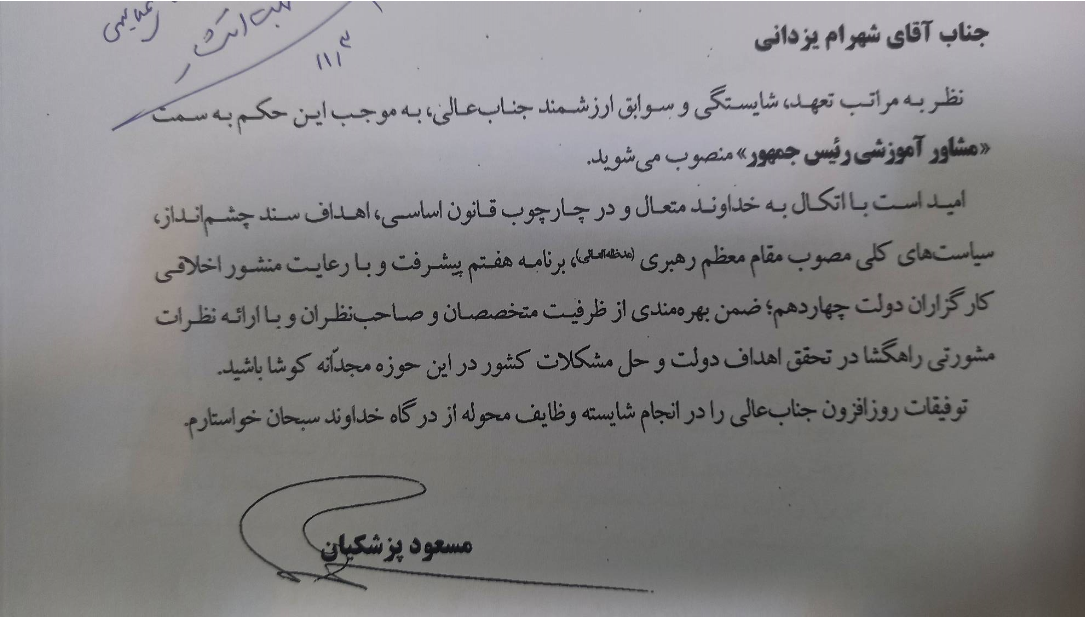 جناب آقای شهرام یزدانی
نظر به مراتب تعهد، شایستگی و سوابق ارزشمند جناب‌عالی، به موجب این حکم به سمت
«مشاور آموزشی رئیس جمهور» منصوب می‌شوید.
امید است با اتکال به خداوند متعال و در چارچوب قانون اساسی، اهداف سند چشم‌انداز،
سیاست‌های کلی مصوب مقام معظم رهبری (مدظله‌العالی)، برنامه هفتم پیشرفت و با رعایت منشور اخلاقی
کارگزاران دولت چهاردهم؛ ضمن بهره‌مندی از ظرفیت متخصصان و صاحب‌نظران و با ارائه نظرات
مشورتی راهگشا در تحقق اهداف دولت و حل مشکلات کشور در این حوزه مجدّانه کوشا باشید.
توفیقات روزافزون جناب‌عالی را در انجام شایسته وظایف محوله از درگاه خداوند سبحان خواستارم.
مسعود پزشکیان